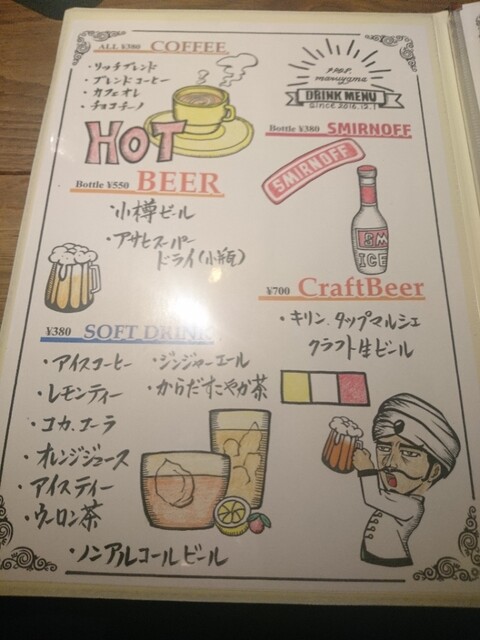 ALL ¥380 COFFEE
・リッチブレンド
・ブレンドコーヒー
・カフェオレ
・チョコチーノ
HOT
maruyama
DRINK MENU
since 2016.12.1
Bottle ¥380 SMIRNOFF
SMIRNOFF
SM
ICE
Bottle ¥550 BEER
・小樽ビール
・アサヒスーパー
ドライ(小瓶)
¥700 CraftBeer
・キリン.タップマルシェ
クラフト生ビール
¥380 SOFT DRINK
・アイスコーヒー
・レモンティー
・コカ.コーラ
・オレンジジュース
・アイスティー
・ウーロン茶
・ジンジャーエール
・からだすこやか茶
・ノンアルコールビール